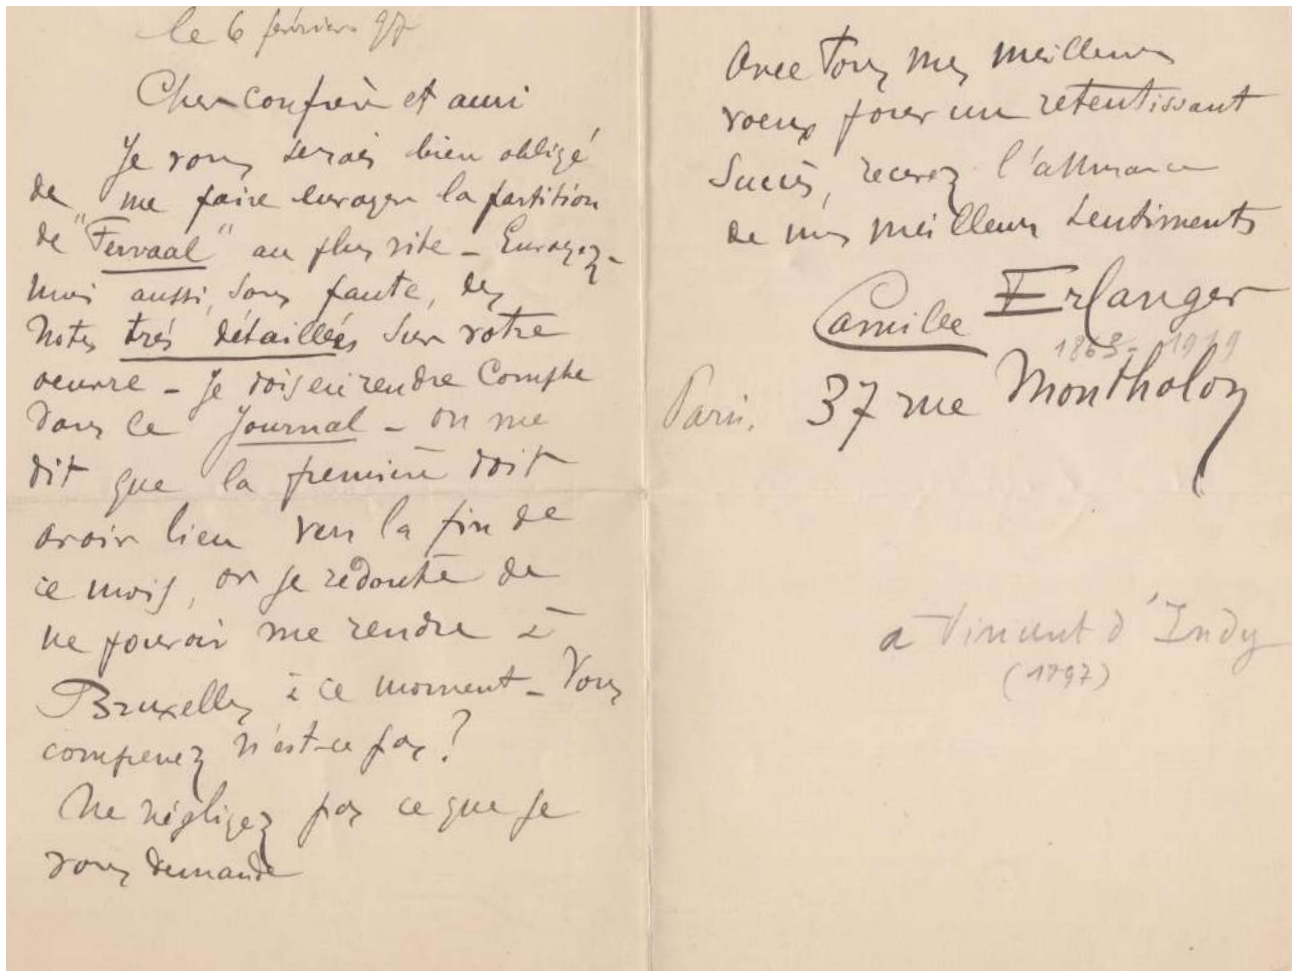 le 6 février 97
Cher confrère et ami
Je vous serais bien obligé
de me faire envoyer la partition
de "Fervaal" au plus vite - Envoyez-
moi aussi, sans faute, des
notes très détaillées sur votre
oeuvre - Je dois en rendre compte
dans le Journal - on me
dit que la première doit
avoir lieu vers la fin de
ce mois, or je redoute de
ne pouvoir me rendre à
Bruxelles à ce moment - Vous
comprenez n'est-ce pas ?
Ne négligez pas ce que je
vous demande
Avec tous mes meilleurs
voeux pour un retentissant
succès, recevez l'assurance
de mes meilleurs sentiments
Camille Erlanger
1863 - 1919
Paris. 37 rue Montholon
à Vincent d'Indy
(1897)